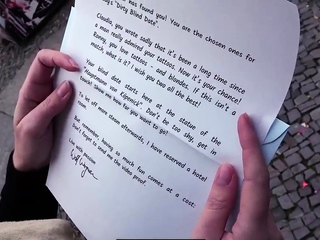 has found you! You are the chosen ones for
"Dirty Blind Date".
Claudia, you wrote sadly that it's been a long time since
a man really admired your tattoos. Now it's your chance!
Ronny, you love tattoos - and blondes. If this isn't a
match, what is it? I wish you two all the best!
Your blind date starts here at the statue of the
"Hauptmann von Köpenick". Don't be too shy, get in
touch! Show me how far you want to get?
To let off more steam afterwards, I have reserved a hotel
room.
But remember: having so much fun comes at a cost:
Don't forget to send me the video proof.